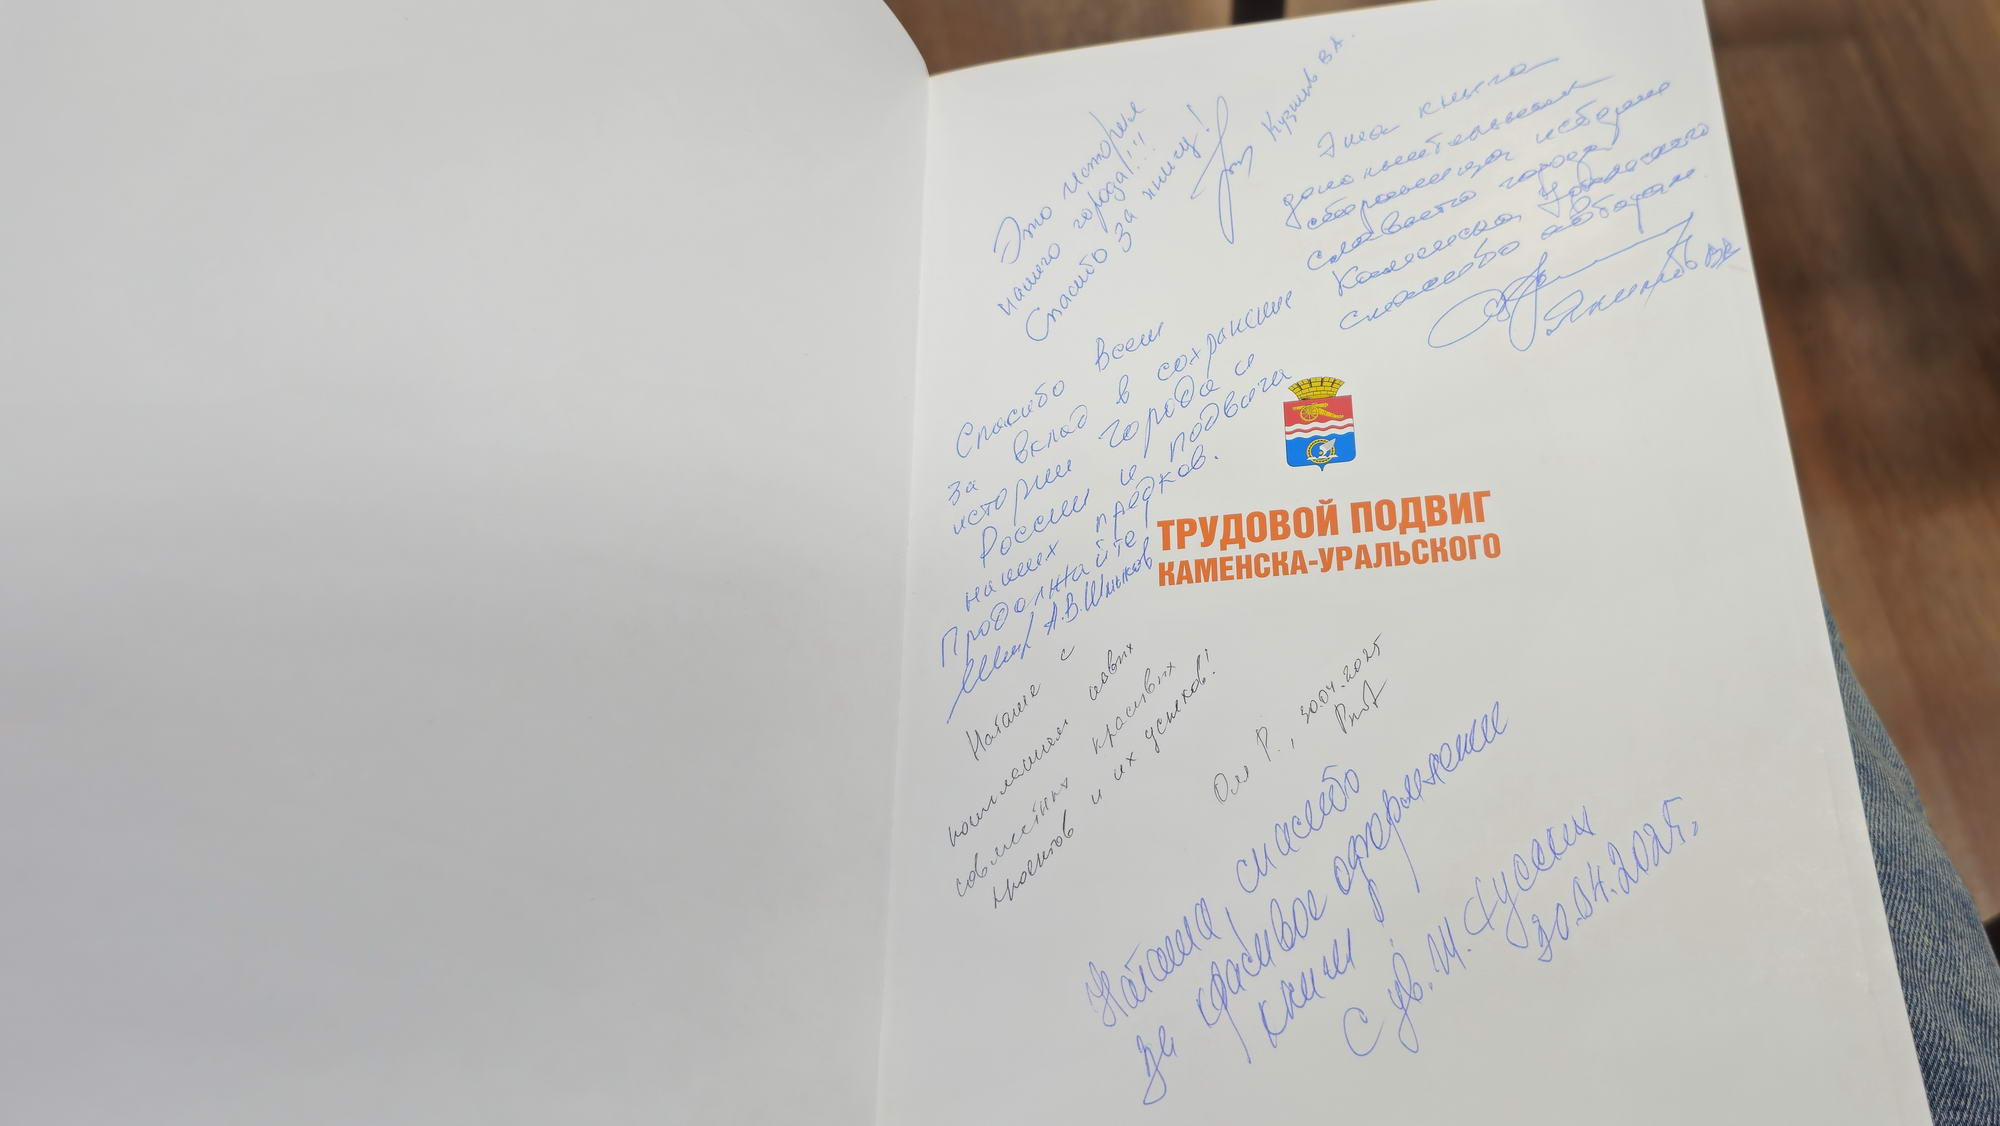 Это история
нашего города!!!
Спасибо за книгу!
Кузнецов ВА.
Эта книга
дополнительная
страница истории
славного города
Каменска Уральского
спасибо авторам.
Спасибо всем
за вклад в сохранение
истории города и
России и подвига
наших предков.
Продолжайте!
А.В.Шмыков
ТРУДОВОЙ ПОДВИГ
КАМЕНСКА-УРАЛЬСКОГО
Наташе с
пожеланием новых
совместных красивых
проектов и их успехов!
Оля Р., 30.04.2025
Наташа, спасибо
за красивое оформление
книги!
С ув.
30.04.2025.